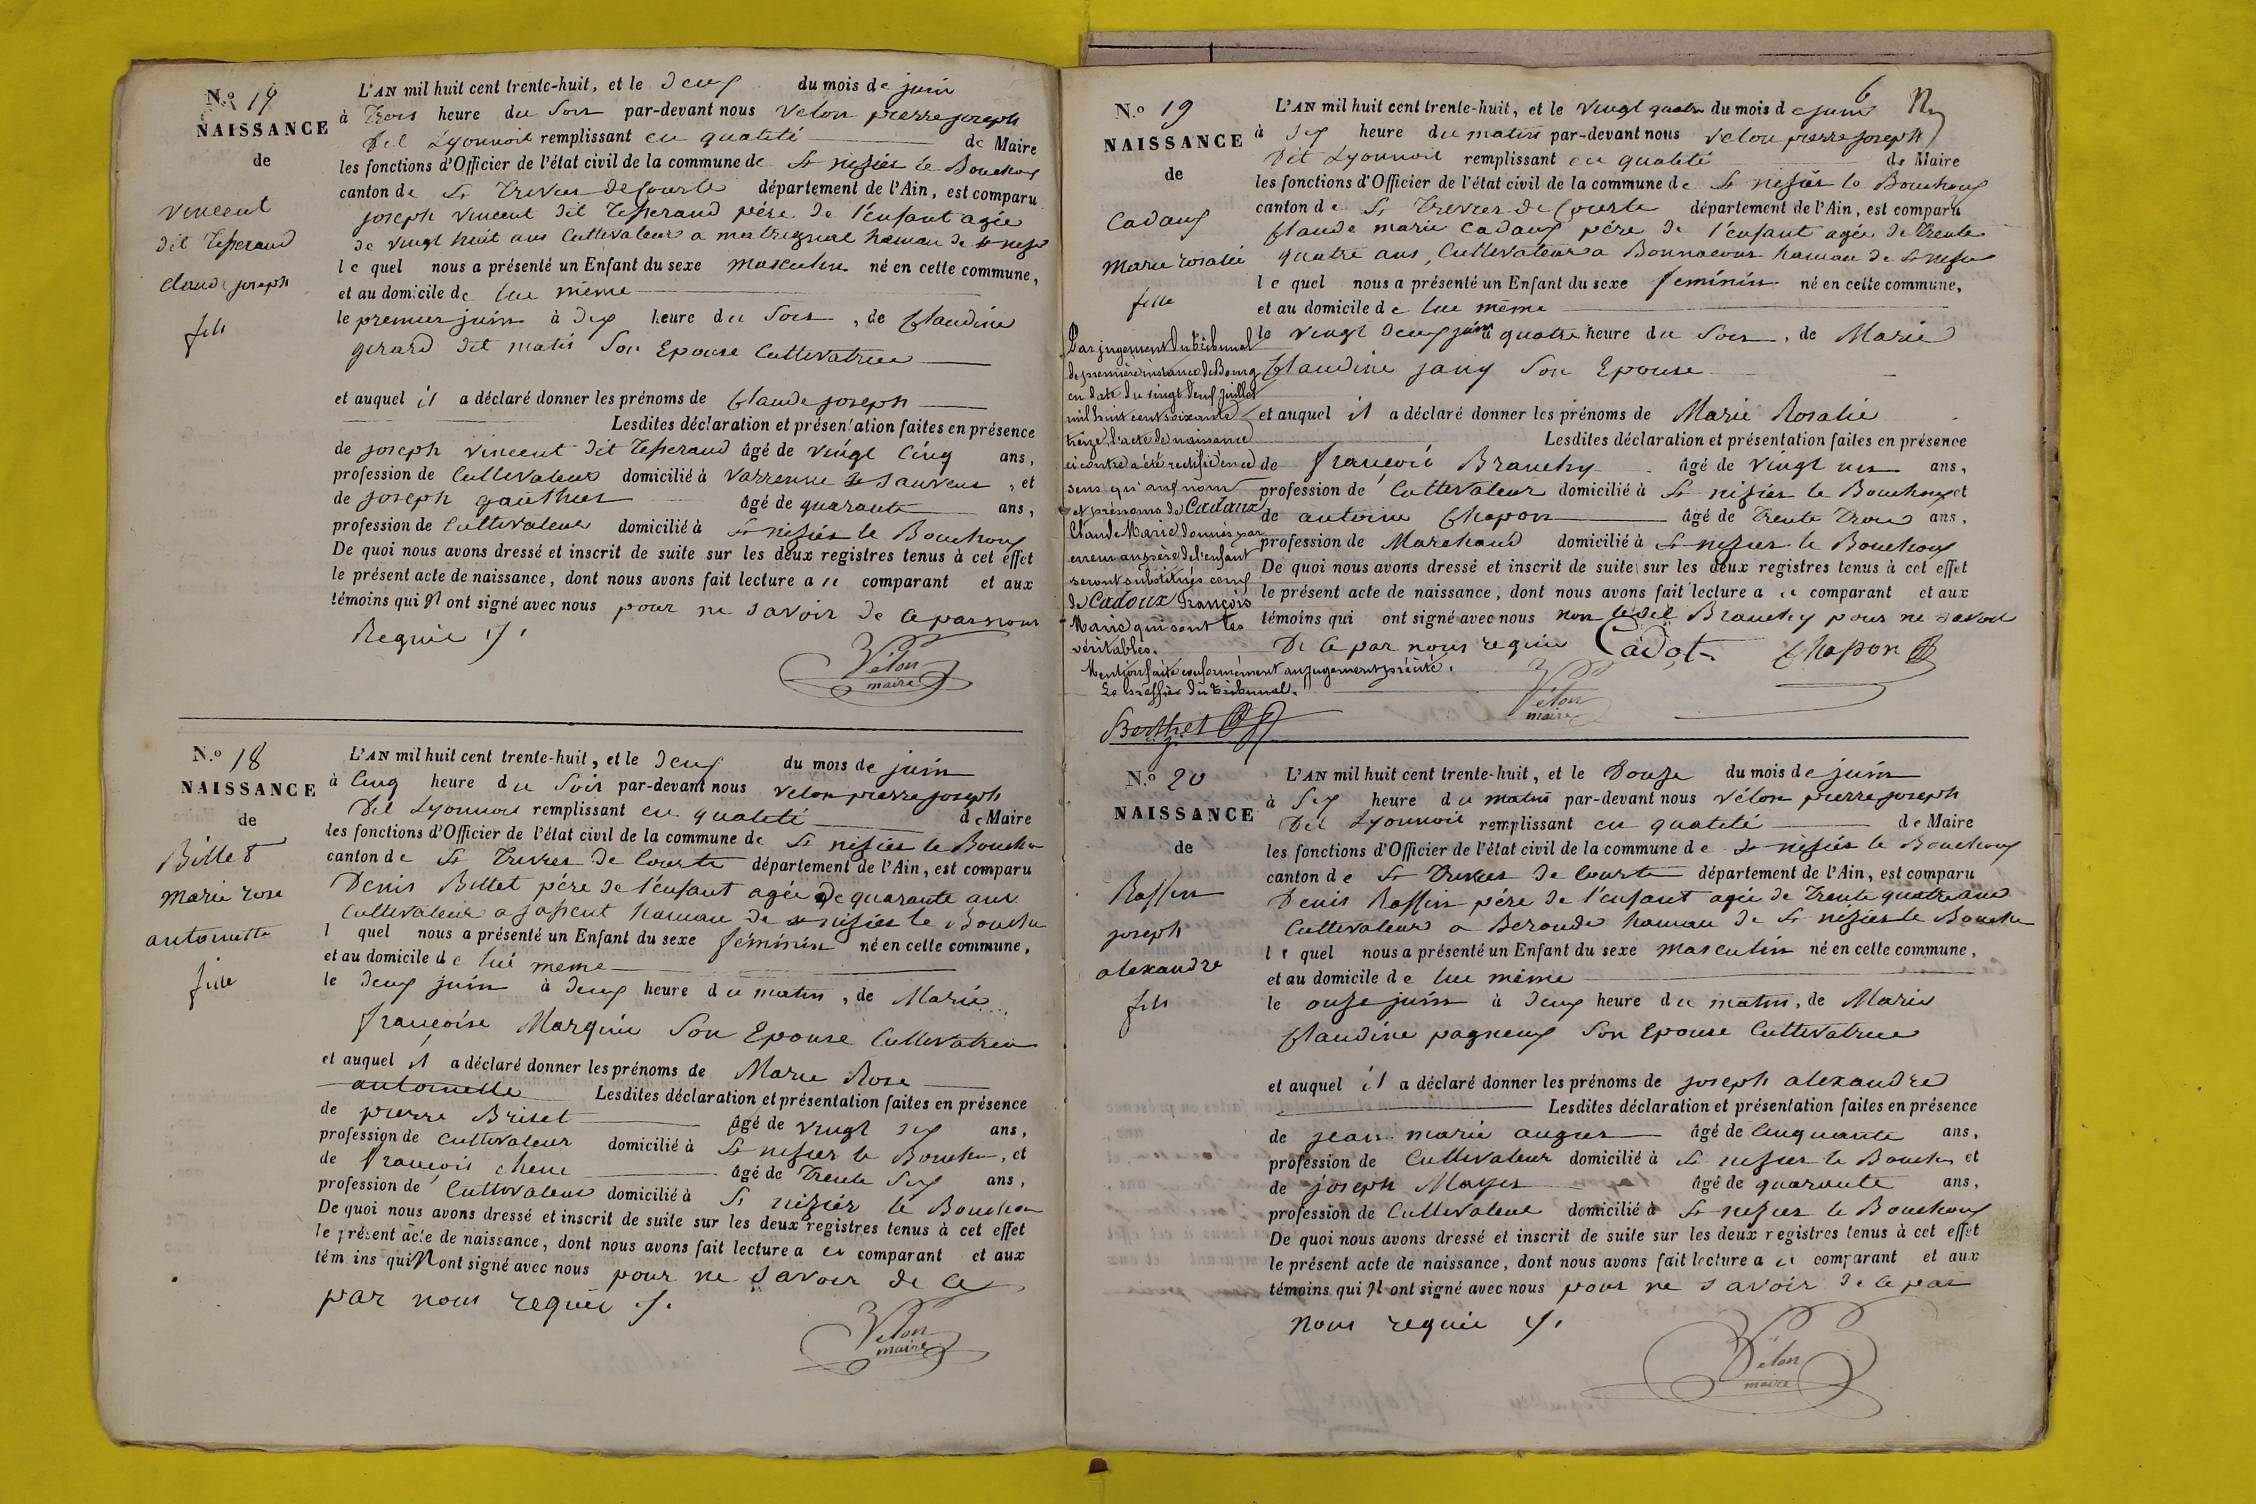 N.o 19
NAISSANCE
de
vincent
dit Tisserand
claude joseph
fils
L'AN mil huit cent trente-huit, et le deux du mois de juin
à trois heure du soir par-devant nous velon pierre joseph
dit Lyonnois remplissant en qualité de Maire
les fonctions d'Officier de l'état civil de la commune de St nizier le Bouchoux
canton de St Trivier de Courte département de l'Ain, est comparu
joseph vincent dit Tisserand père de l'enfant agée
de vingt huit ans Cultivateur a hameau de St nizier
le quel nous a présenté un Enfant du sexe masculin né en cette commune,
et au domicile de lui même
le premier juin à dix heure du soir, de Claudine
girard dit matis son Epouse Cultivatrice
et auquel il a déclaré donner les prénoms de Claude joseph
Lesdites déclaration et présentation faites en présence
de joseph vincent dit Tisserand âgé de vingt cinq ans,
profession de Cultivateur domicilié à varrenne St sauveur, et
de joseph gauthier âgé de quarante ans,
profession de Cultivateur domicilié à St nizier le Bouchoux
De quoi nous avons dressé et inscrit de suite sur les deux registres tenus à cet effet
le présent acte de naissance, dont nous avons fait lecture a ce comparant et aux
témoins qui N ont signé avec nous pour ne savoir de ce par nous
Requis ./.
Vélon
maire
N.o 18
NAISSANCE
de
Billet
marie rose
antoinette
fille
L'AN mil huit cent trente-huit, et le deux du mois de juin
à Cinq heure du soir par-devant nous velon pierre joseph
dit Lyonnois remplissant en qualité de Maire
les fonctions d'Officier de l'état civil de la commune de St nizier le Bouchou
canton de St Trivier de Courte département de l'Ain, est comparu
Denis Billet père de l'enfant agée de quarante ans
Cultivateur a hameau de St nizier le Bouchu
l quel nous a présenté un Enfant du sexe féminin né en cette commune,
et au domicile de lui meme
le deux juin à deux heure du matin, de Marie
françoise Marguin son Epouse Cultivatrice
et auquel il a déclaré donner les prénoms de Marie Rose
antoinette Lesdites déclaration et présentation faites en présence
de pierre Briset âgé de vingt six ans,
profession de Cultivateur domicilié à St nizier le Bouchu, et
de françois chene âgé de Trente six ans,
profession de Cultivateur domicilié à St nizier le Bouchou
De quoi nous avons dressé et inscrit de suite sur les deux registres tenus à cet effet
le présent acte de naissance, dont nous avons fait lecture a ce comparant et aux
témoins qui N ont signé avec nous pour ne savoir de ce
par nous requis ./.
Vélon
maire
6
N.o 19
NAISSANCE
de
Cadaux
Marie rosalie
fille
Par jugement du tribunal
de première instance de Bourg
en date du vingt neuf juillet
mil huit cent soixante
treize, l'acte de naissance
ci contre a été rectifié en ce
sens qu'aux nom
et prénoms de Cadaux
Claude Marie donnés par
erreur au père de l'enfant
seront substitués ceux
de Cadoux François
Marie qui sont les
véritables.
Mention faite conformément au jugement précité.
Le Greffier du Tribunal.
Berthet
L'AN mil huit cent trente-huit, et le vingt quatre du mois de juin
à six heure du matin par-devant nous velon pierre joseph
Dit Lyonnois remplissant en qualité de Maire
les fonctions d'Officier de l'état civil de la commune de St nizier le Bouchoux
canton de St Trivier de Courte département de l'Ain, est comparu
Claude marie cadaux père de l'enfant agée de trente
quatre ans, Cultivateur a Bonnacour hameau de St nizier
le quel nous a présenté un Enfant du sexe feminin né en cette commune,
et au domicile de lui même
le vingt deux juin à quatre heure du soir, de Marie
Claudine jany son Epouse
et auquel il a déclaré donner les prénoms de Marie Rosalie
Lesdites déclaration et présentation faites en présence
de françois Branchy âgé de vingt un ans,
profession de Cultivateur domicilié à St nizier le Bouchoux et
de antoine Chapon âgé de Trente Trois ans,
profession de Marchand domicilié à St nizier le Bouchoux
De quoi nous avons dressé et inscrit de suite sur les deux registres tenus à cet effet
le présent acte de naissance, dont nous avons fait lecture a ce comparant et aux
témoins qui ont signé avec nous non ledit Branchy pour ne savoir
De ce par nous requis Cadot Chapon
Vélon
maire
N.o 20
NAISSANCE
de
Raffin
joseph
alexandre
fils
L'AN mil huit cent trente-huit, et le Douze du mois de juin
à six heure du matin par-devant nous vélon pierre joseph
Dit Lyonnois remplissant en qualité de Maire
les fonctions d'Officier de l'état civil de la commune de St nizier le Bouchoux
canton de St Trivier de Courte département de l'Ain, est comparu
Denis Raffin père de l'enfant agée de Trente quatre ans
Cultivateur a Beronde hameau de St nizier le Bouchu
le quel nous a présenté un Enfant du sexe masculin né en cette commune,
et au domicile de lui même
le onze juin à deux heure du matin, de Marie
Claudine pagneux son Epouse Cultivatrice
et auquel il a déclaré donner les prénoms de joseph alexandre
Lesdites déclaration et présentation faites en présence
de jean marie auger âgé de Cinquante ans,
profession de Cultivateur domicilié à St nizier le Bouchu et
de joseph Mayer âgé de quarante ans,
profession de Cultivateur domicilié à St nizier le Bouchoux
De quoi nous avons dressé et inscrit de suite sur les deux registres tenus à cet effet
le présent acte de naissance, dont nous avons fait lecture a ce comparant et aux
témoins qui N ont signé avec nous pour ne savoir de ce par
nous requis ./.
Vélon
maire